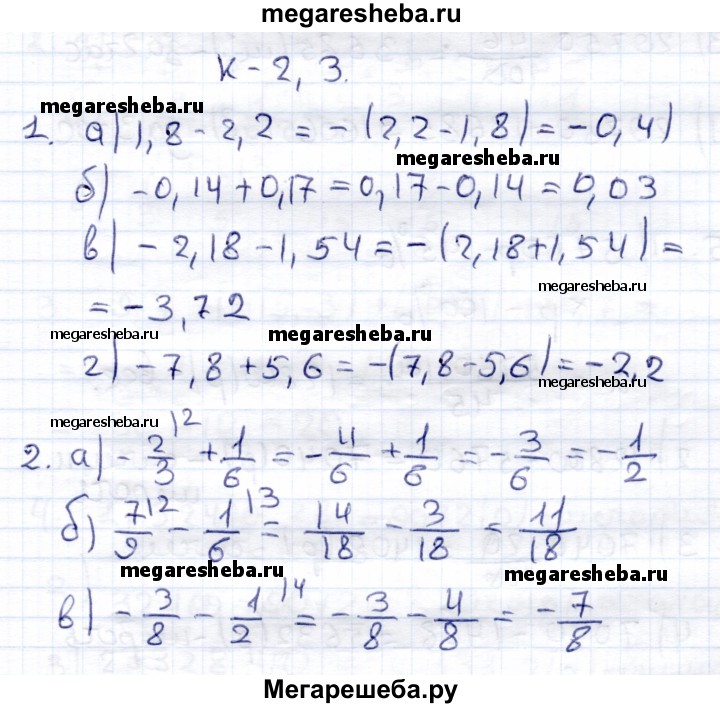 megaresheba.ru
К-2, 3.
megaresheba.ru
1. а) 1,8-2,2 = -(2,2-1,8) = -0,4)
megaresheba.ru
б) -0,14+0,17=0,17-0,14=0,03
в) -2,18-1,54=-(2,18+1,54)=
megaresheba.ru
= -3,72
megaresheba.ru
megaresheba.ru
г) -7,8+5,6=-(7,8-5,6)=-2,2
megaresheba.ru
megaresheba.ru
2. а) -2/3 \2 + 1/6 = -4/6 + 1/6 = -3/6 = -1/2
б) 7/9 \2 - 1/6 \3 = 14/18 - 3/18 = 11/18
megaresheba.ru
megaresheba.ru
в) -3/8 - 1/2 \4 = -3/8 - 4/8 = -7/8
Мегарешеба.ру